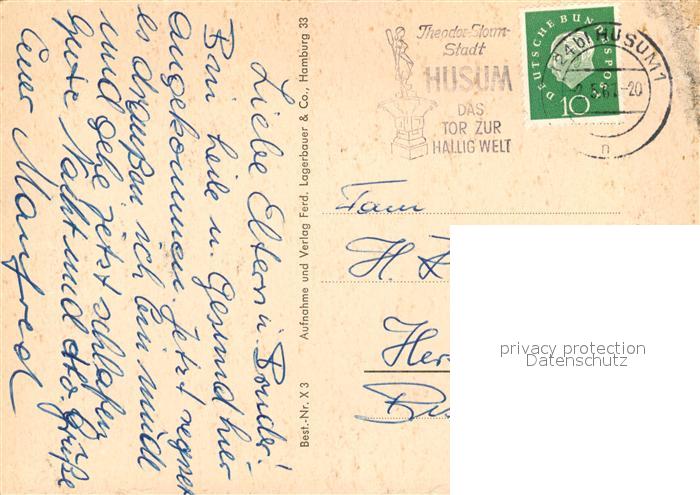 Liebe Eltern u. Bruder!
Bin heile u. Gesund hier
angekommen. Jetzt regnet
es draußen ich bin müde
und gehe jetzt schlafen
Gute Nacht und Grüße
Euer Manfred
Best.-Nr. X 3 Aufnahme und Verlag Ferd. Lagerbauer & Co., Hamburg 33
Theodor-Storm-
Stadt
HUSUM
DAS
TOR ZUR
HALLIG WELT
DEUTSCHE BUNDESPOST
10
24b HUSUM 1
-20
n
Fam
H.
privacy protection
Datenschutz